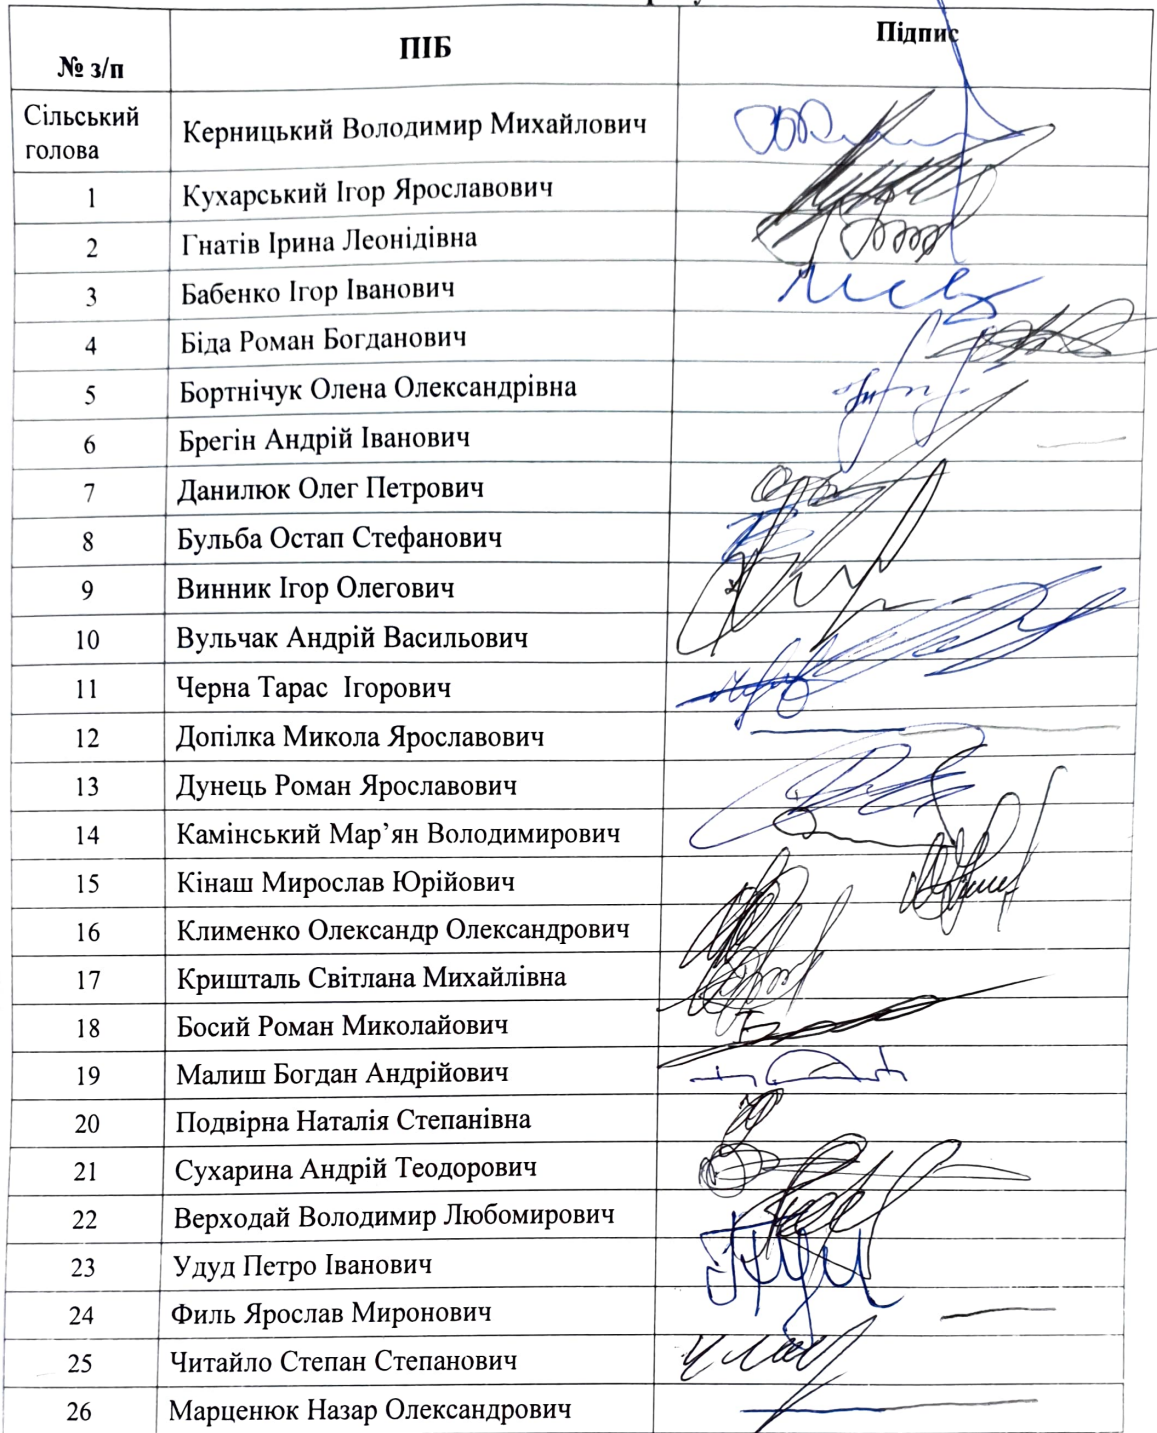 № з/п ПІБ Підпис
Сільський голова Керницький Володимир Михайлович
1 Кухарський Ігор Ярославович
2 Гнатів Ірина Леонідівна
3 Бабенко Ігор Іванович
4 Біда Роман Богданович
5 Бортнічук Олена Олександрівна
6 Брегін Андрій Іванович
7 Данилюк Олег Петрович
8 Бульба Остап Стефанович
9 Винник Ігор Олегович
10 Вульчак Андрій Васильович
11 Черна Тарас Ігорович
12 Допілка Микола Ярославович
13 Дунець Роман Ярославович
14 Камінський Мар’ян Володимирович
15 Кінаш Мирослав Юрійович
16 Клименко Олександр Олександрович
17 Кришталь Світлана Михайлівна
18 Босий Роман Миколайович
19 Малиш Богдан Андрійович
20 Подвірна Наталія Степанівна
21 Сухарина Андрій Теодорович
22 Верходай Володимир Любомирович
23 Удуд Петро Іванович
24 Филь Ярослав Миронович
25 Читайло Степан Степанович
26 Марценюк Назар Олександрович